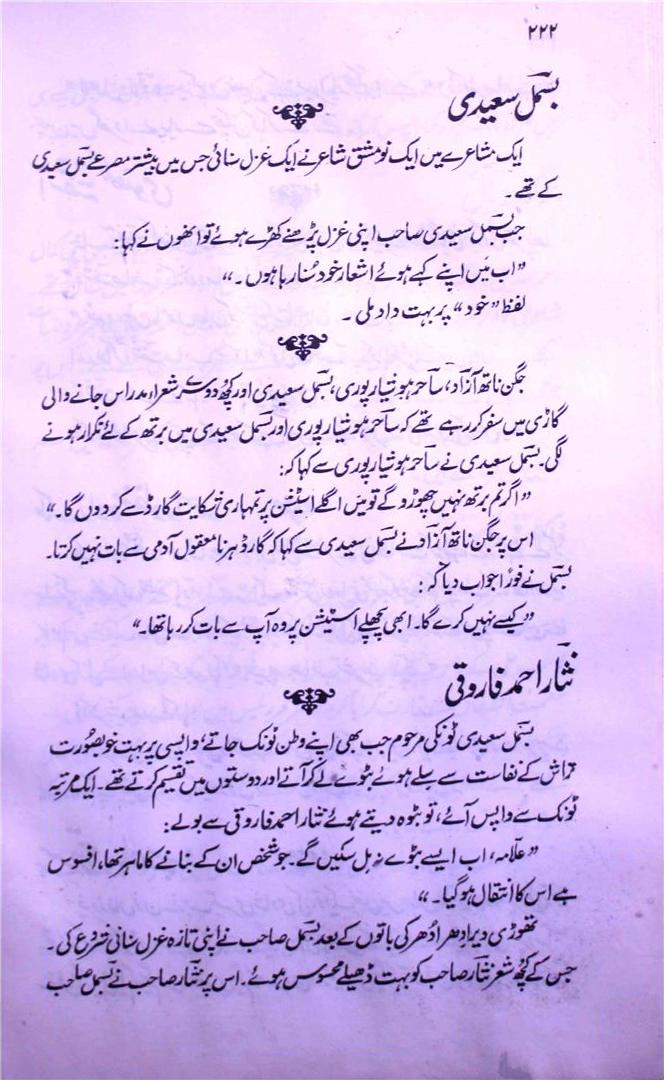 ۲۲۲
بسمل سعیدی
ایک مشاعرے میں ایک نو مشق شاعر نے ایک غزل سنائی جس میں بیشتر مصرعے بسمل سعیدی
کے تھے۔
جب بسمل سعیدی صاحب اپنی غزل پڑھنے کھڑے ہوئے تو انھوں نے کہا:
"اب میں اپنے کہے ہوئے اشعار خود سُنا رہا ہوں۔"
لفظ "خود" پر بہت داد ملی۔
جگن ناتھ آزاد، ساحر ہوشیارپوری، بسمل سعیدی اور کچھ دوسرے شعراء مدراس جانے والی
گاڑی میں سفر کر رہے تھے کہ ساحر ہوشیارپوری اور بسمل سعیدی میں برتھ کے لئے تکرار ہونے
لگی۔ بسمل سعیدی نے ساحر ہوشیارپوری سے کہا کہ:
"اگر تم برتھ نہیں چھوڑو گے تو میں اگلے اسٹیشن پر تمہاری شکایت گارڈ سے کر دوں گا۔"
اس پر جگن ناتھ آزاد نے بسمل سعیدی سے کہا کہ گارڈ ہر نامعقول آدمی سے بات نہیں کرتا۔
بسمل نے فوراً جواب دیا کہ:
"کیسے نہیں کرے گا۔ ابھی پچھلے اسٹیشن پر وہ آپ سے بات کر رہا تھا۔"
نثار احمد فاروقی
بسمل سعیدی ٹونکی مرحوم جب بھی اپنے وطن ٹونک جاتے، واپسی پر بہت خوبصورت
تراش کے نفاست سے سلے ہوئے بٹوے لے کر آتے اور دوستوں میں تقسیم کرتے تھے۔ ایک مرتبہ
ٹونک سے واپس آئے، تو بٹوہ دیتے ہوئے نثار احمد فاروقی سے بولے:
"علّامہ، اب ایسے بٹوے نہ مل سکیں گے۔ جو شخص ان کے بنانے کا ماہر تھا، افسوس
ہے اس کا انتقال ہو گیا۔"
تھوڑی دیر ادھر اُدھر کی باتوں کے بعد بسمل صاحب نے اپنی تازہ غزل سنانی شروع کی۔
جس کے کچھ شعر نثار صاحب کو بہت ڈھیلے محسوس ہوئے۔ اس پر نثار صاحب نے بسمل صاحب